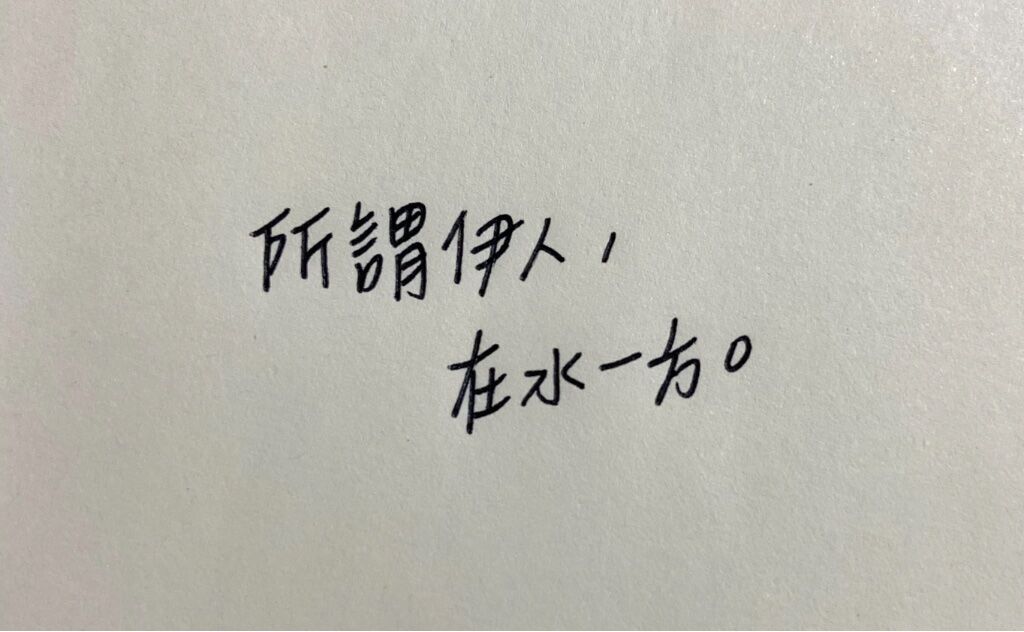 所謂伊人，
在水一方。